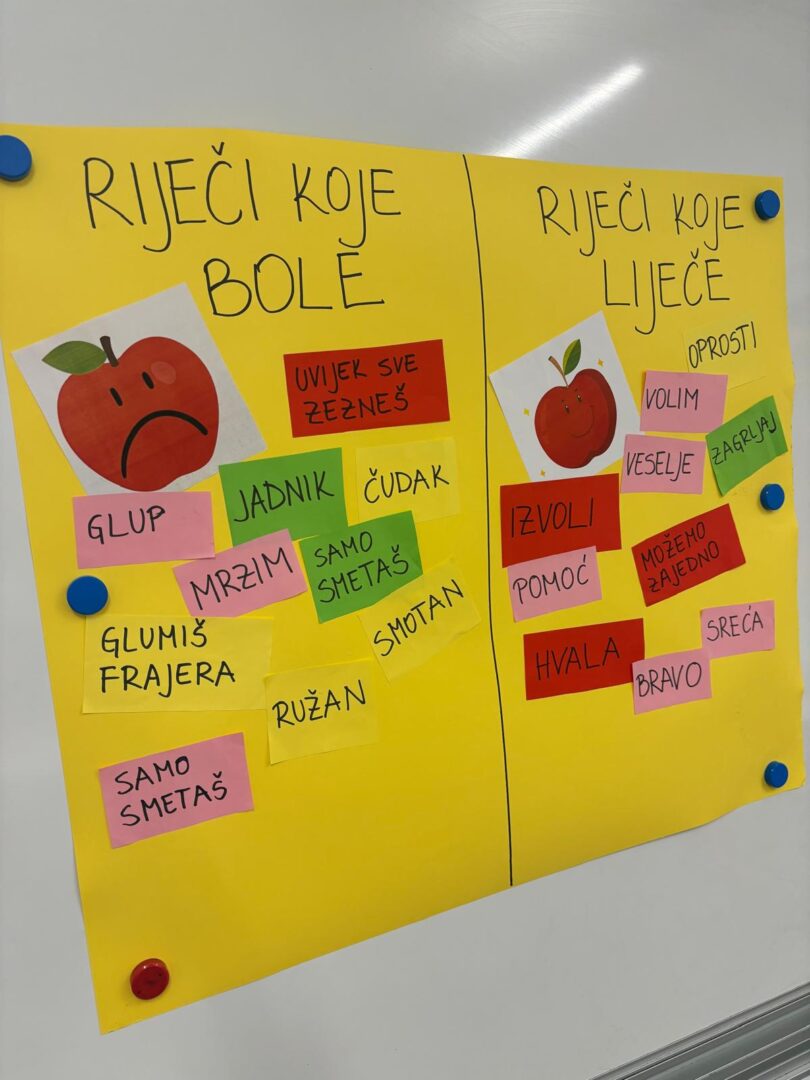 RIJEČI KOJE
BOLE
UVIJEK SVE
ZEZNEŠ
JADNIK
ČUDAK
GLUP
MRZIM
SAMO
SMETAŠ
SMOTAN
GLUMIŠ
FRAJERA
RUŽAN
SAMO
SMETAŠ
RIJEČI KOJE
LIJEČE
OPROSTI
VOLIM
ZAGRLJAJ
VESELJE
IZVOLI
MOŽEMO
ZAJEDNO
POMOĆ
SREĆA
HVALA
BRAVO